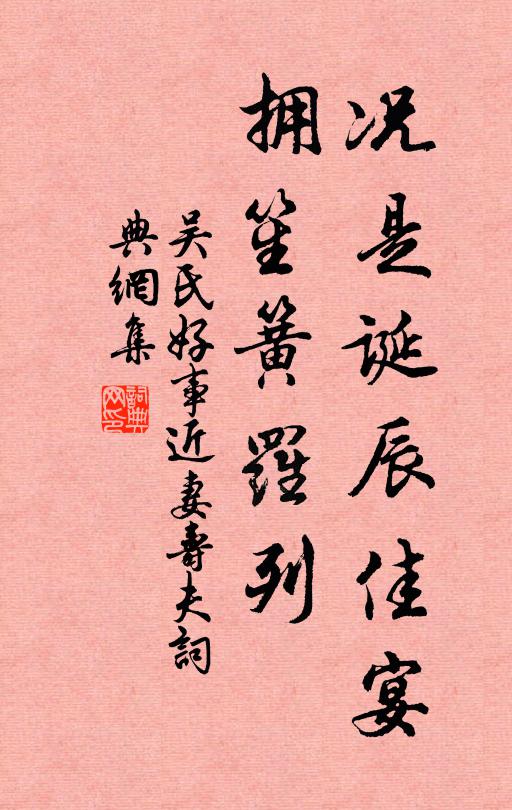 况是诞辰佳宴
拥笙簧罗列
吴氏好事近妻寿夫词
典网集
词典网印